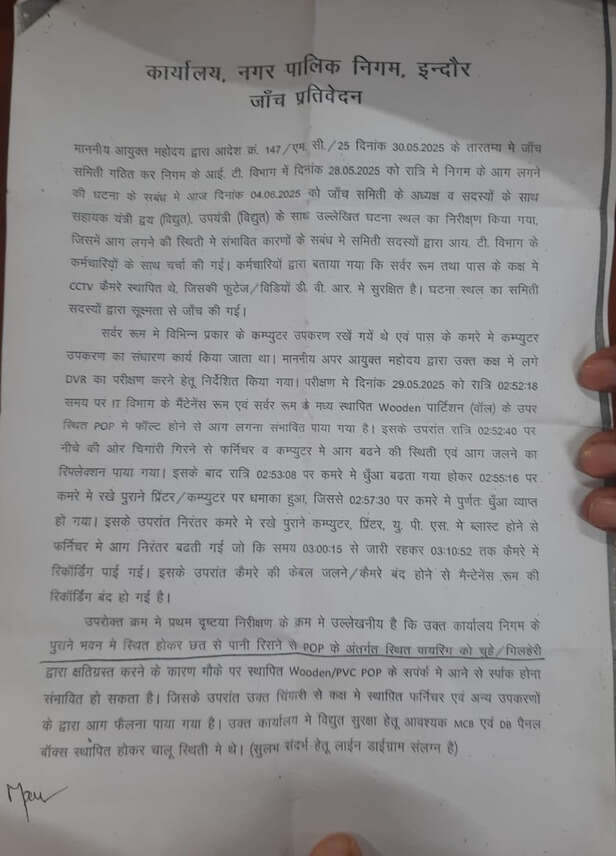 कार्यालय, नगर पालिक निगम, इन्दौर
जाँच प्रतिवेदन
माननीय आयुक्त महोदय द्वारा आदेश क्रं. 147/एम. सी./25 दिनांक 30.05.2025 के तारतम्य मे जाँच
समिती गठित कर निगम के आई. टी. विभाग में दिनांक 28.05.2025 को रात्रि मे निगम के आग लगने
की घटना के सबंध मे आज दिनांक 04.06.2025 को जाँच समिती के अध्यक्ष व सदस्यों के साथ
सहायक यंत्री द्वय (विद्युत), उपयंत्री (विद्युत) के साथ उल्लेखित घटना स्थल का निरीक्षण किया गया,
जिसमें आग लगने की स्थिती मे संभावित कारणों के सबंध मे समिती सदस्यों द्वारा आय. टी. विभाग के
कर्मचारियों के साथ चर्चा की गई। कर्मचारियों द्वारा बताया गया कि सर्वर रूम तथा पास के कक्ष मे
CCTV कैमरे स्थापित थे, जिसकी फुटेज/विडियों डी. वी. आर. मे सुरक्षित है। घटना स्थल का समिती
सदस्यों द्वारा सूक्ष्मता से जाँच की गई।
सर्वर रूम मे विभिन्न प्रकार के कम्प्युटर उपकरण रखें गयें थे एवं पास के कमरे मे कम्प्युटर
उपकरण का संधारण कार्य किया जाता था। माननीय अपर आयुक्त महोदय द्वारा उक्त कक्ष मे लगे
DVR का परीक्षण करने हेतू निर्देशित किया गया। परीक्षण मे दिनांक 29.05.2025 को रात्रि 02:52:18
समय पर IT विभाग के मैंटेनेंस रूम एवं सर्वर रूम के मध्य स्थापित Wooden पार्टिशन (वॉल) के उपर
स्थित POP मे फॉल्ट होने से आग लगना संभावित पाया गया है। इसके उपरांत रात्रि 02:52:40 पर
नीचे की ओर चिंगारी गिरने से फर्निचर व कम्प्युटर मे आग बढने की स्थिती एवं आग जलने का
रिफ्लेक्शन पाया गया। इसके बाद रात्रि 02:53:08 पर कमरे मे धुँआ बढता गया होकर 02:55:16 पर
कमरे मे रखे पुराने प्रिंटर/कम्प्युटर पर धमाका हुआ, जिससे 02:57:30 पर कमरे मे पुर्णतः धुँआ व्याप्त
हो गया। इसके उपरांत निरंतर कमरे मे रखे पुराने कम्प्युटर, प्रिंटर, यु. पी. एस. मे ब्लास्ट होने से
फर्निचर मे आग निरंतर बढती गई जो कि समय 03:00:15 से जारी रहकर 03:10:52 तक कैमरे में
रिकॉर्डिंग पाई गई। इसके उपरांत कैमरे की केबल जलने/कैमरे बंद होने से मैन्टेनेंस रूम की
रिकॉर्डिंग बंद हो गई है।
उपरोक्त क्रम मे प्रथम दृष्टया निरीक्षण के क्रम मे उल्लेखनीय है कि उक्त कार्यालय निगम के
पुराने भवन मे स्थित होकर छत से पानी रिसने से POP के अंतर्गत स्थित वायरिंग को चूहे/गिलहेरी
द्वारा क्षतिग्रस्त करने के कारण मौके पर स्थापित Wooden/PVC POP के सपंर्क मे आने से स्पार्क होना
संभावित हो सकता है। जिसके उपरांत उक्त चिंगारी से कक्ष मे स्थापित फर्निचर एवं अन्य उपकरणों
के द्वारा आग फैलना पाया गया है। उक्त कार्यालय मे विद्युत सुरक्षा हेतू आवश्यक MCB एवं DB पैनल
बॉक्स स्थापित होकर चालू स्थिती मे थे। (सुलभ संदर्भ हेतू लाईन डाईग्राम संलग्न है)